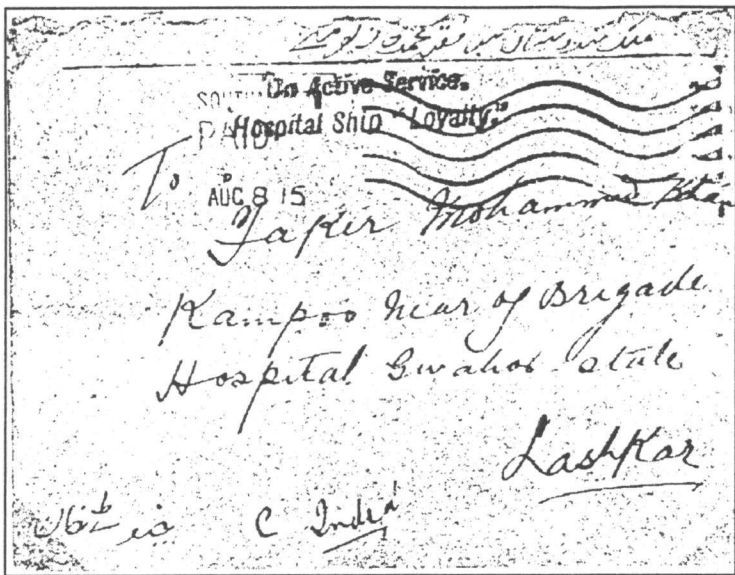 On Active Service.
SOUTH
Hospital Ship "Loyalty."
PAID
To
AUG 8 15
Fakir Mohammed Khan
Kampoo Near of Brigade
Hospital Gwalior state
Lashkar
C India